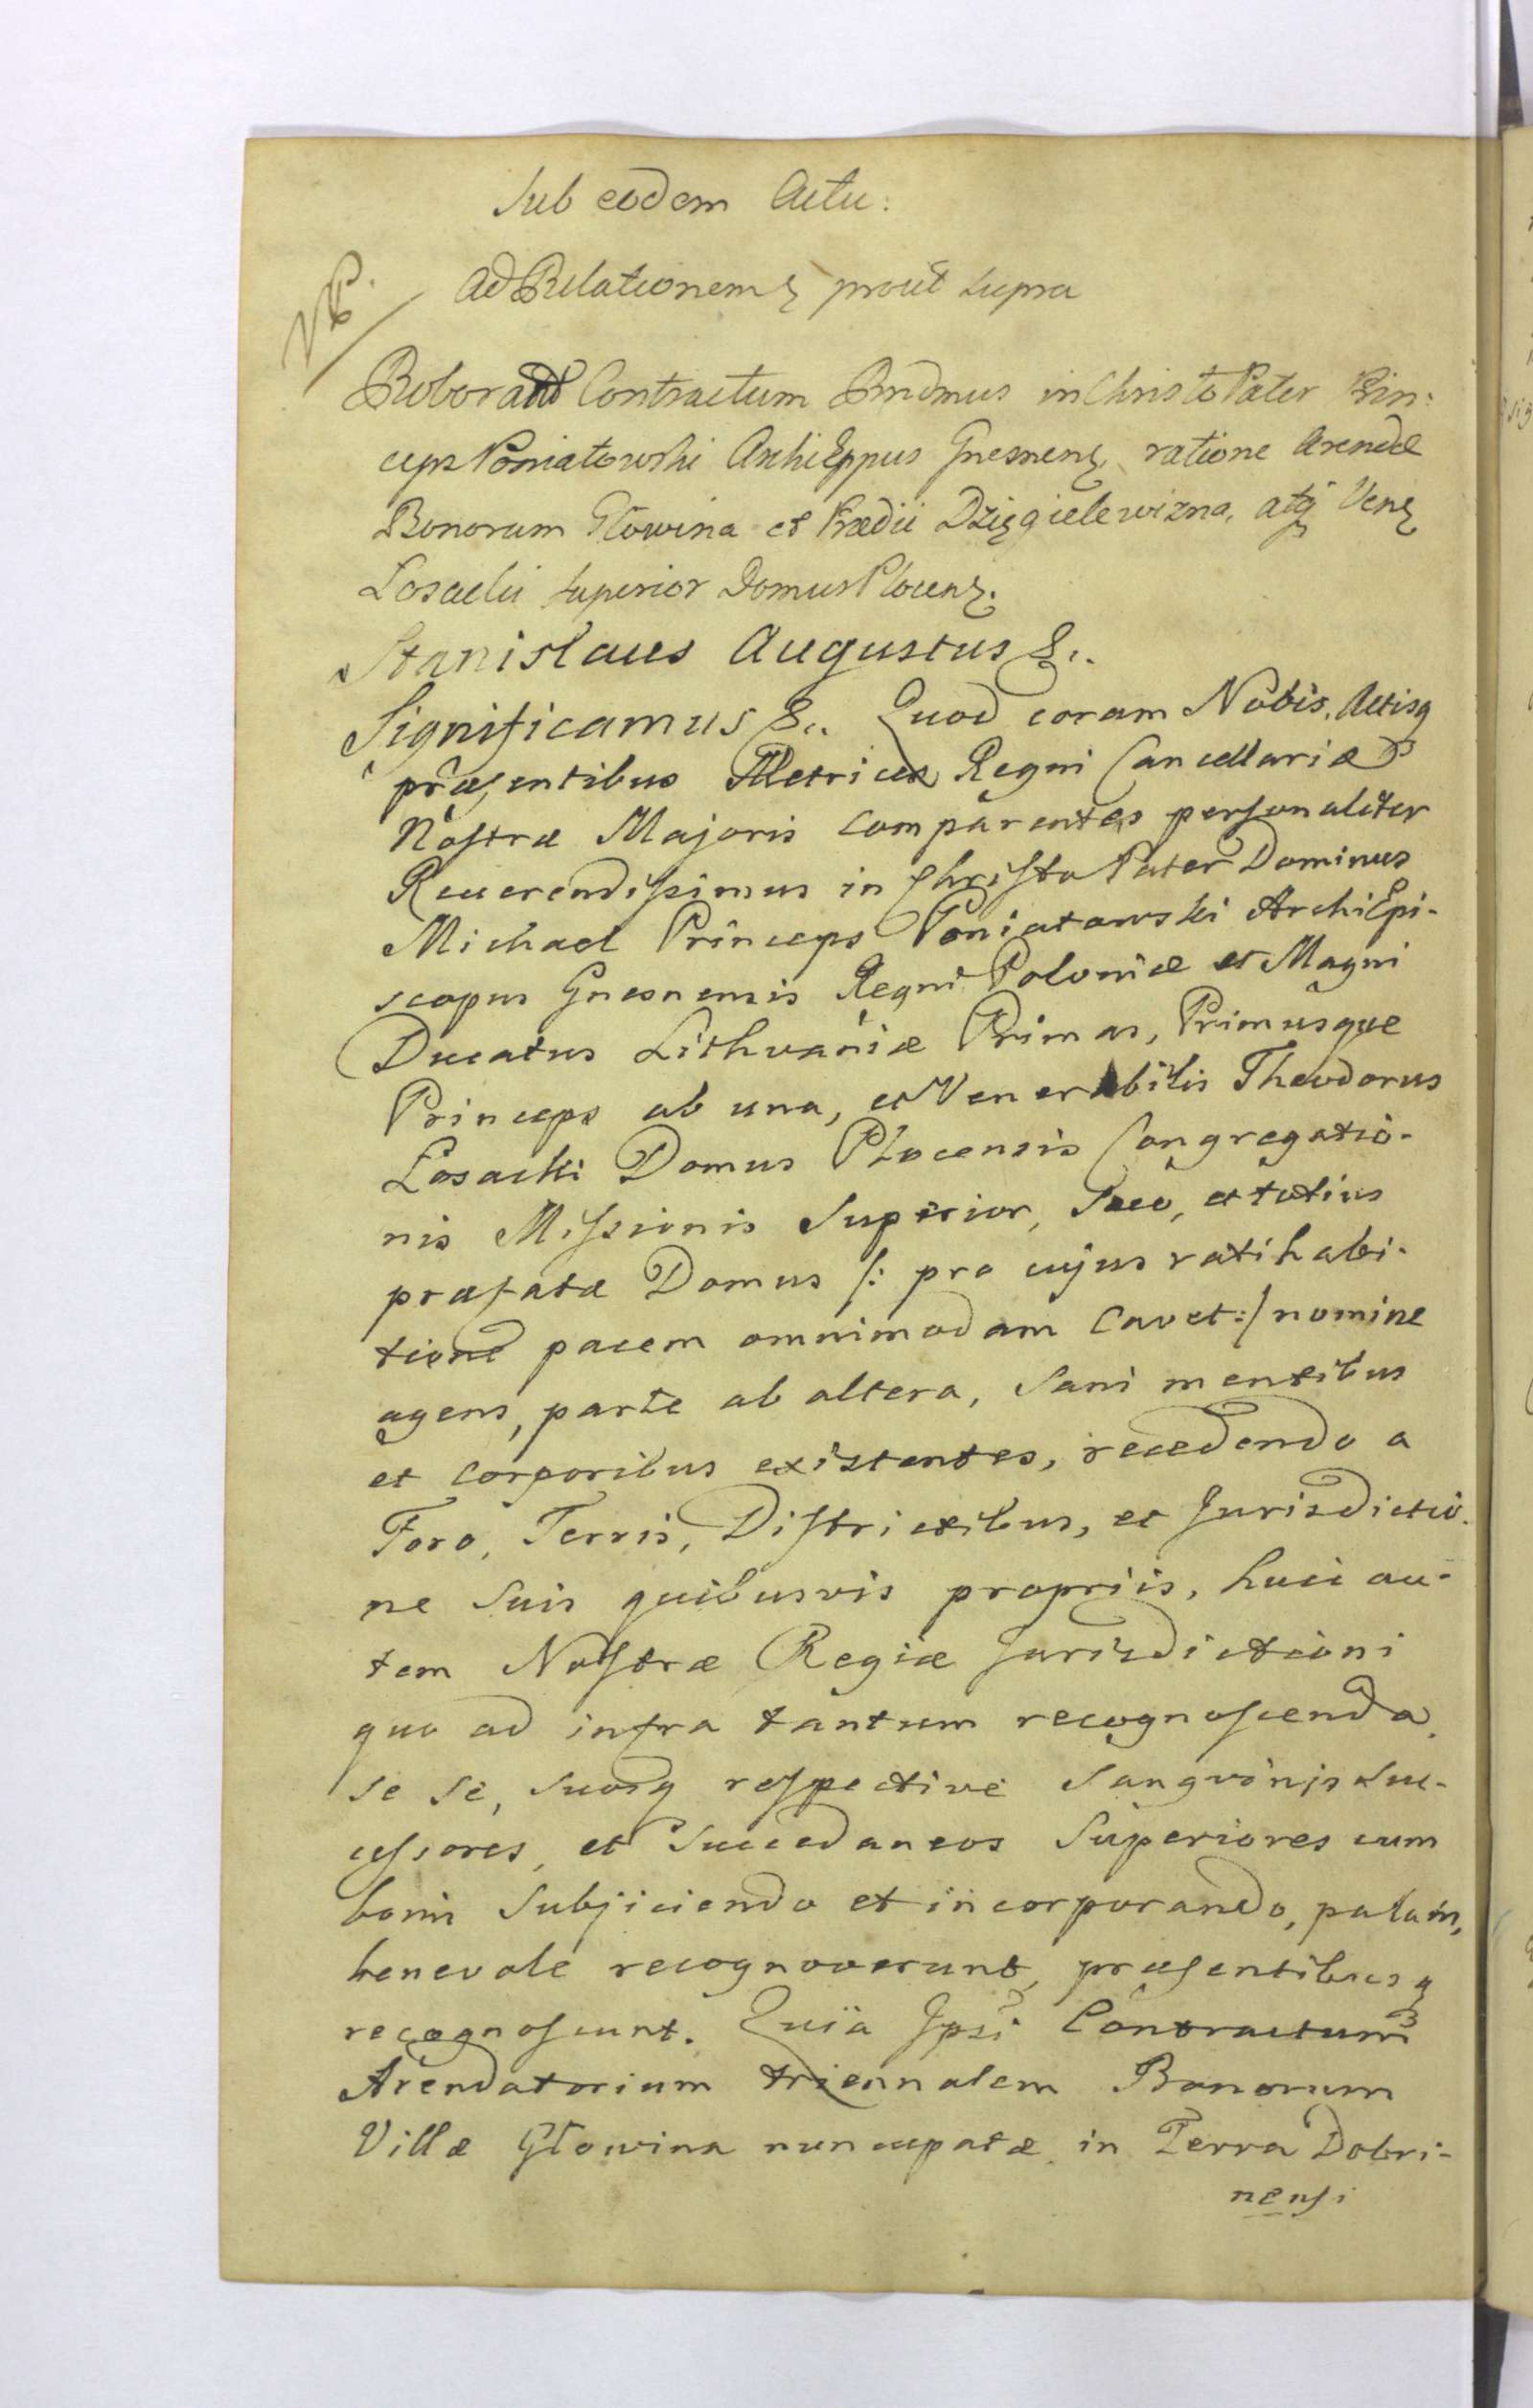 Sub eodem Actu:
Ad Relationem prout supra
Roborant Contractum Rndmus in Christo Pater Prin:
ceps Poniatowski ArchiEppus Gnesnen, ratione Arendæ
Bonorum Głowina et Prædii Dzięgielewizna, atq Ven
Łosacki Superior Domus Plocen.
Stanislaus Augustus &..
Significamus &.. Quod coram Nobis, Actisq
præsentibus Metrices Regni Cancellariæ
Nostræ Majoris comparentes personaliter
Reuerendissimus in Christo Pater Dominus
Michael Princeps Poniatowski ArchiEpi-
scopus Gnesnensis Regni Poloniæ et Magni
Ducatus Lithvaniæ Primas, Primusque
Princeps ab una, et Venerabilis Theodorus
Łosacki Domus Plocensis Congregatio-
nis Missionis Superior, Suo, et totius
præfatæ Domus /: pro cujus ratihabi-
tione pacem omnimodam cavet :/ nomine
agens, parte ab altera, Sani mentibus
et corporibus existentes, recedendo a
Foro, Terris, Districtibus, et Jurisdictio-
ne Suis quibusvis propriis, huic au-
tem Nostræ Regiæ Jurisdictioni
quo ad infra tantum recognoscenda
se se, suosq respective Sangvinis Suc-
cessores, et Succedaneos Superiores cum
bonis Subjiciendo et incorporando, palam,
benevole recognoverunt, præsentibusq
recognoscunt. Quia Ipsi Contractum
Arendatorium triennalem Bonorum
Villæ Głowina nuncupatæ in Terra Dobri-
nensi